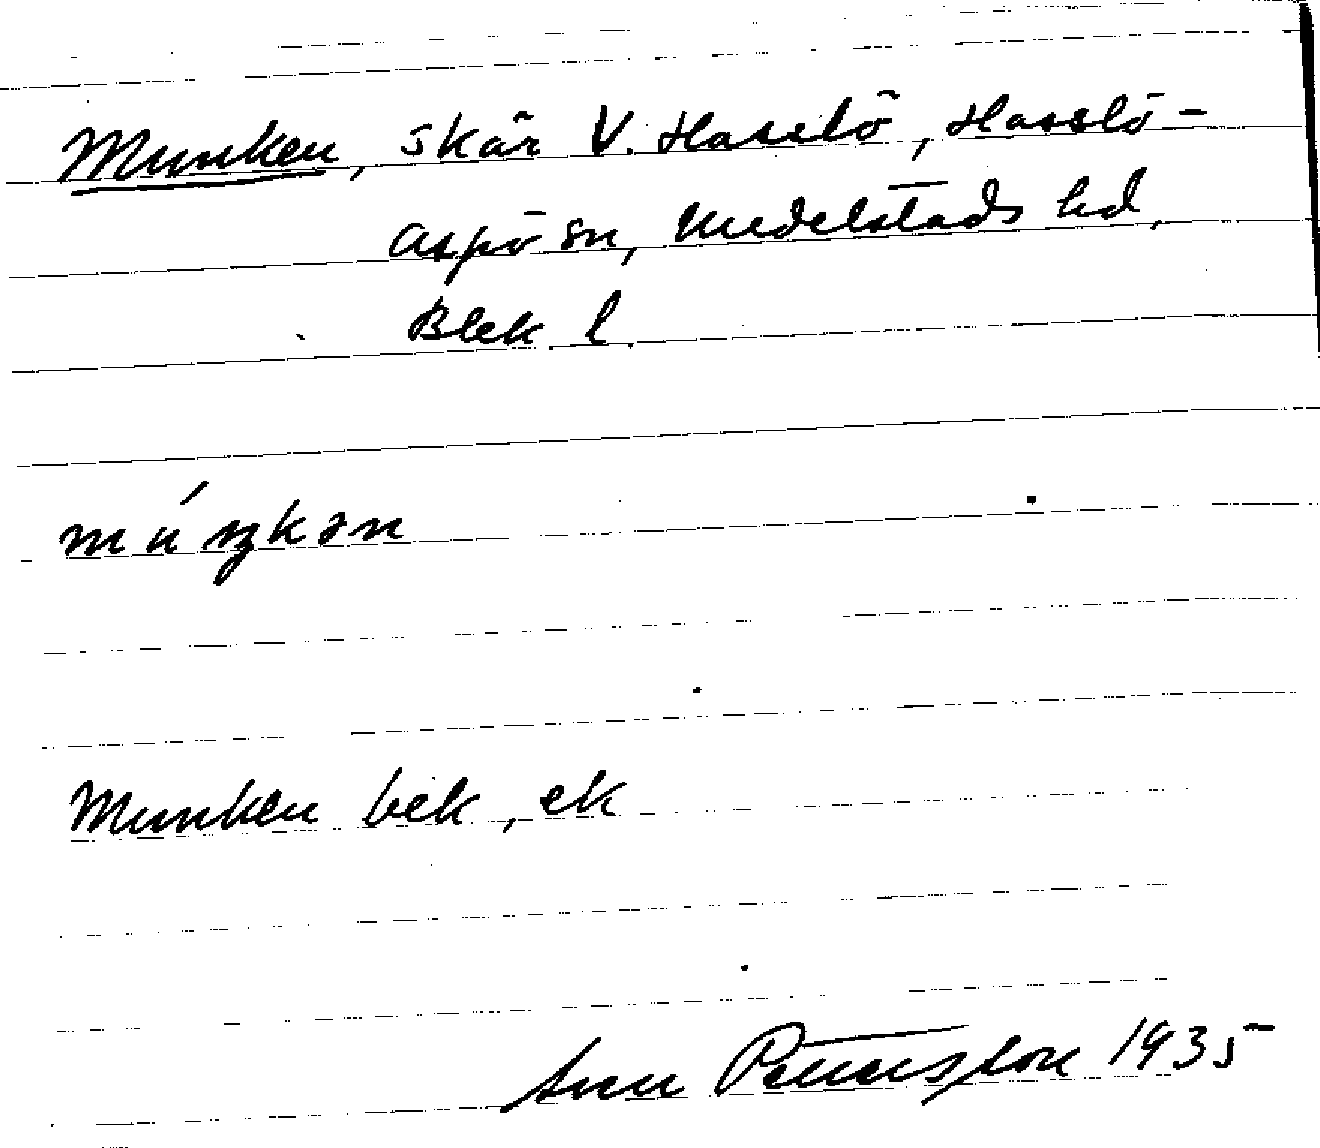 Munken, skär V. Hasslö, Hasslö-
Aspö sn, Medelstads hd,
Blek l.
múŋkən
Munken bek, ek
Pettersson 1935